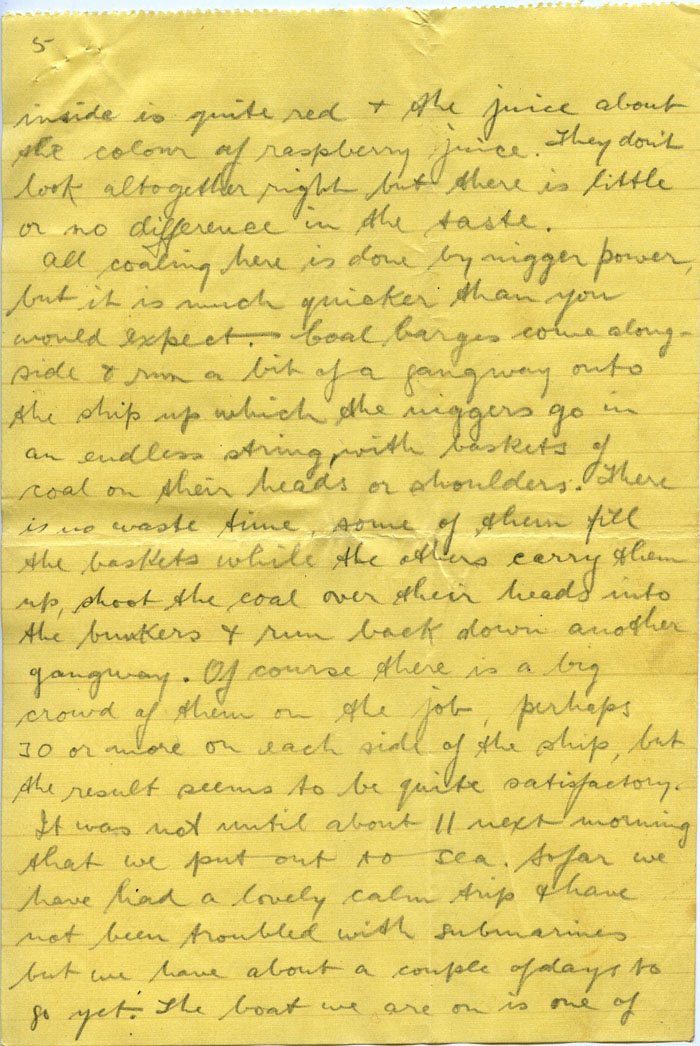 5
inside is quite red & the juice about
the colour of raspberry juice. They don't
look altogether right but there is little
or no difference in the taste.
All coaling here is done by nigger power,
but it is much quicker than you
would expect. Coal barges come along-
side & run a bit of a gangway onto
the ship up which the niggers go in
an endless string, with baskets of
coal on their heads or shoulders. There
is no waste time, some of them fill
the baskets while the others carry them
up, shoot the coal over their heads into
the bunkers & run back down another
gangway. Of course there is a big
crowd of them on the job, perhaps
30 or more on each side of the ship, but
the result seems to be quite satisfactory.
It was not until about 11 next morning
that we put out to sea. So far we
have had a lovely calm trip & have
not been troubled with submarines
but we have about a couple of days to
go yet. The boat we are on is one of